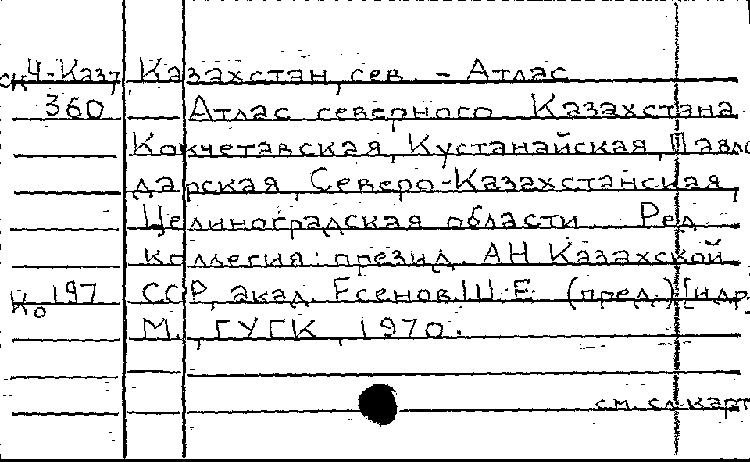 СК Ч-Каз7 Казахстан, сев. - Атлас
360 Атлас северного Казахстана
Кокчетавская, Кустанайская, Павло
дарская, Северо-Казахстанская,
Целиноградская области. Ред.
коллегия: презид. АН Казахской
Ко 197 ССР, акад. Есенов Ш.Е. (пред.) [идр.
М., ГУГК, 1970.
см. сл. карт